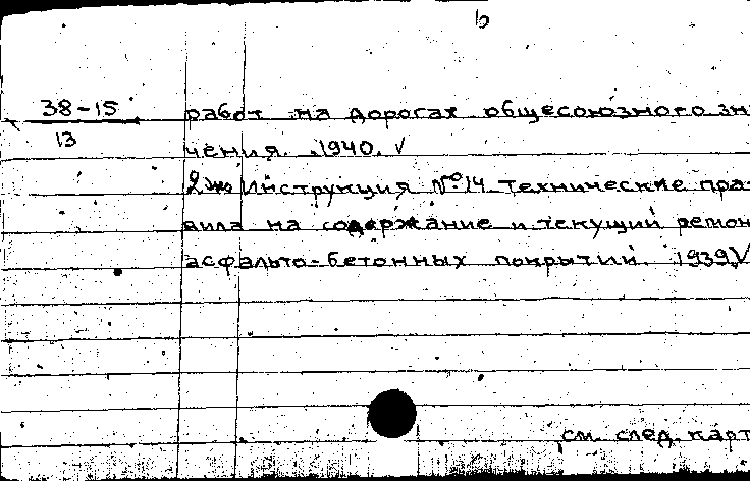 b
38-15
13
работ на дорогах общесоюзного зна
чения. 1940. V
2 экз Инструкция № 14 технические пра-
вила на содержание и текущий ремон
асфальто-бетонных покрытий. 1939. V
см. след. карт